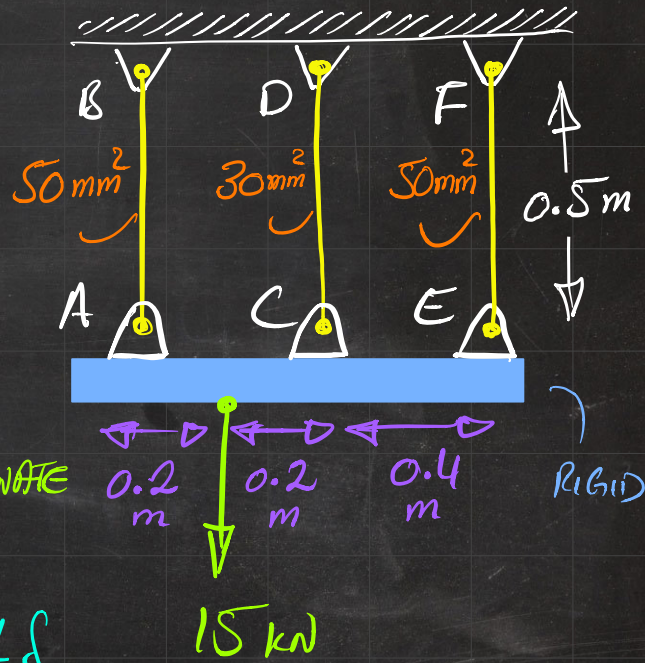 B D F
50mm² 30mm² 50mm²
0.5m
A C E
0.2 m 0.2 m 0.4 m
RIGID
15 kN